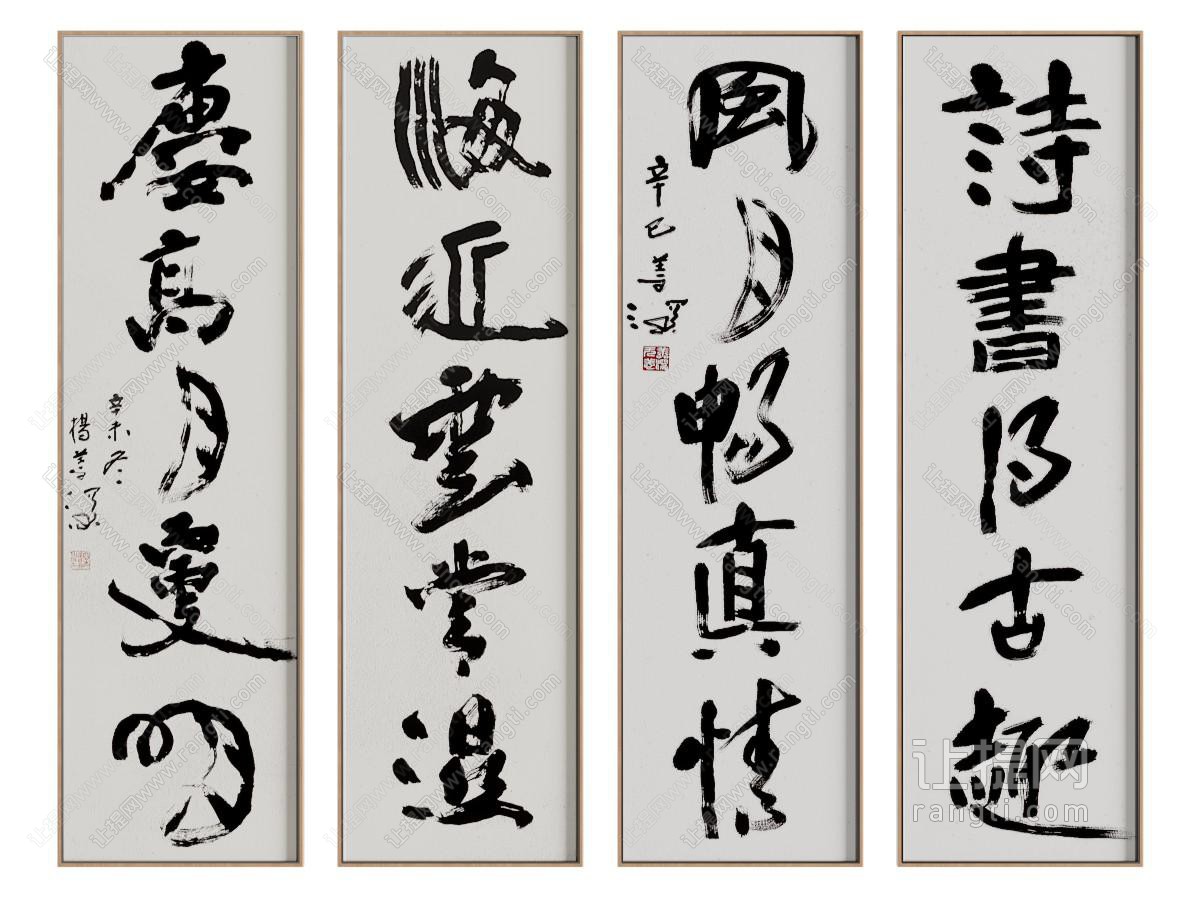 詩書得古趣
風月暢真情
辛巳善深
海近雲常湿
廔高月更明
辛未冬
楊善深
让提网
rangti.com